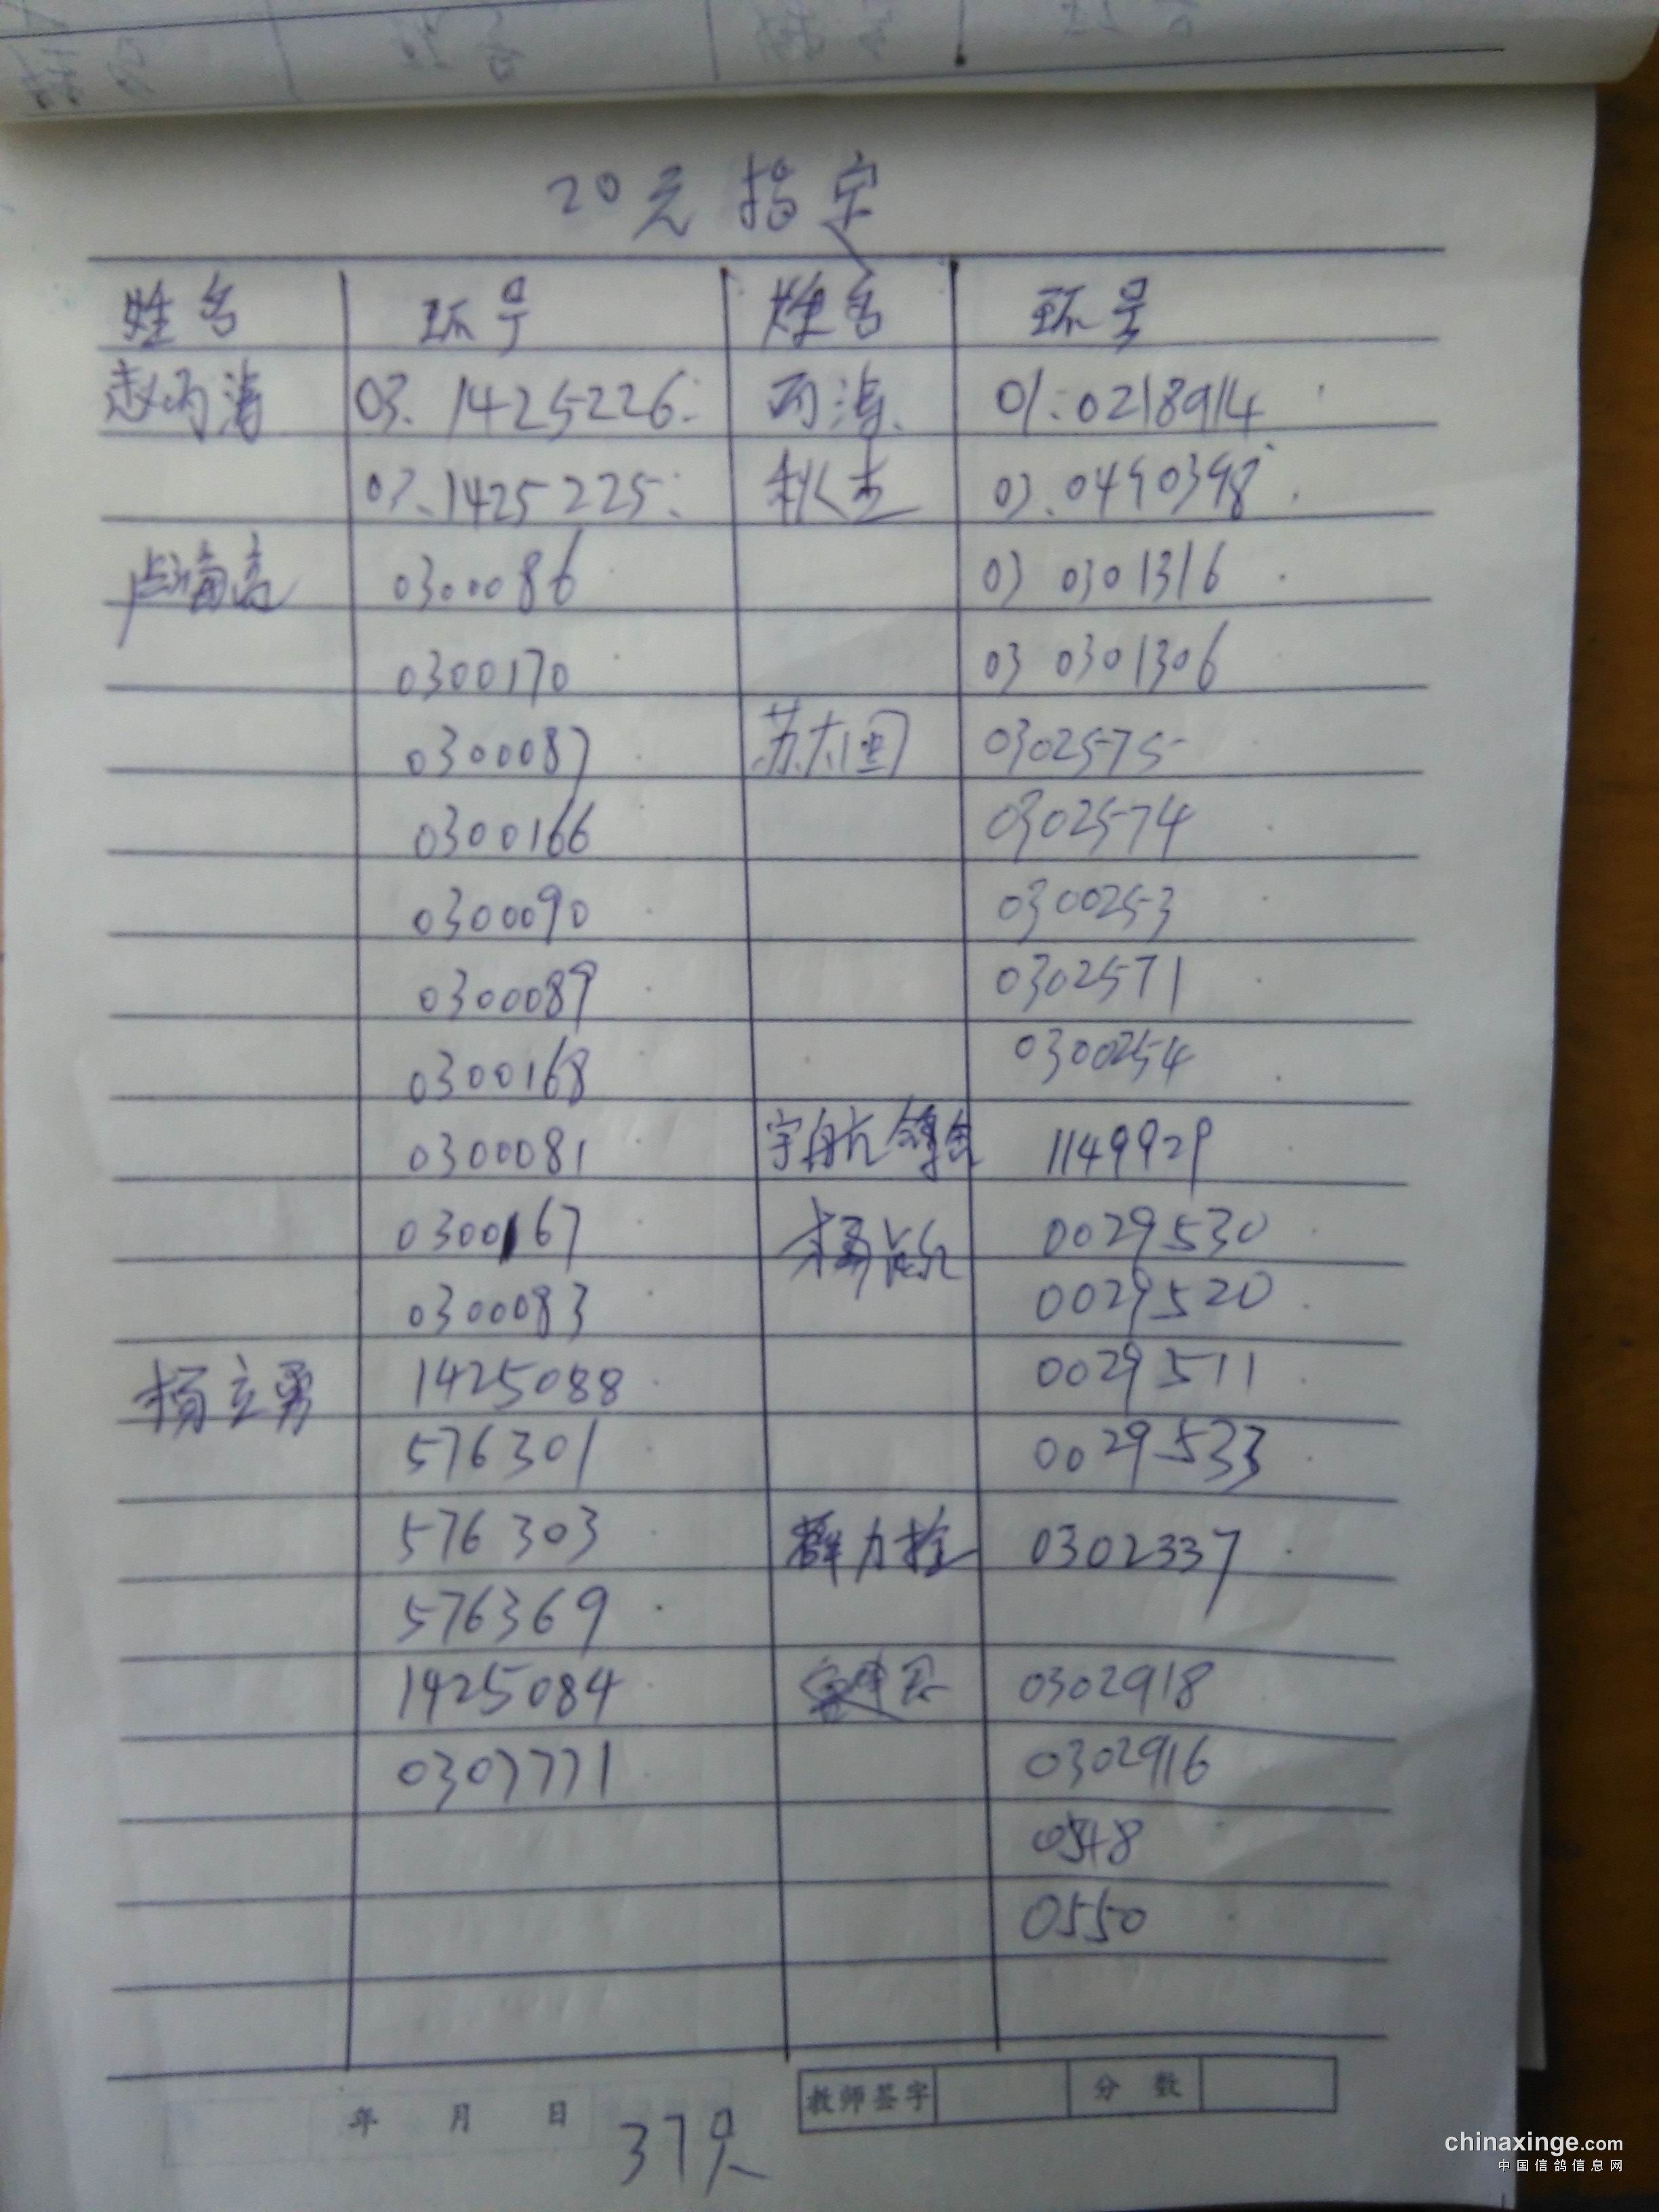 20元指定
姓名 环号 姓名 环号
赵丙涛 03.1425226 丙涛 01:0218914
03.1425225 秋杰 03.0490398
卢海高 0300086 03 0301316
0300170 03 0301306
0300087 苏大囬 0302575
0300166 0302574
0300090 0300253
0300089 0302571
0300168 0300254
0300081 宇航鸽舍 1149929
0300167 0029530
0300083 0029520
杨立勇 1425088 0029511
576301 0029533
576303 群力栓 0302337
576369
1425084 0302918
0307771 0302916
0548
0550
年 月 日 37只 教师签字 分数
chinaxinge.com
中国信鸽信息网